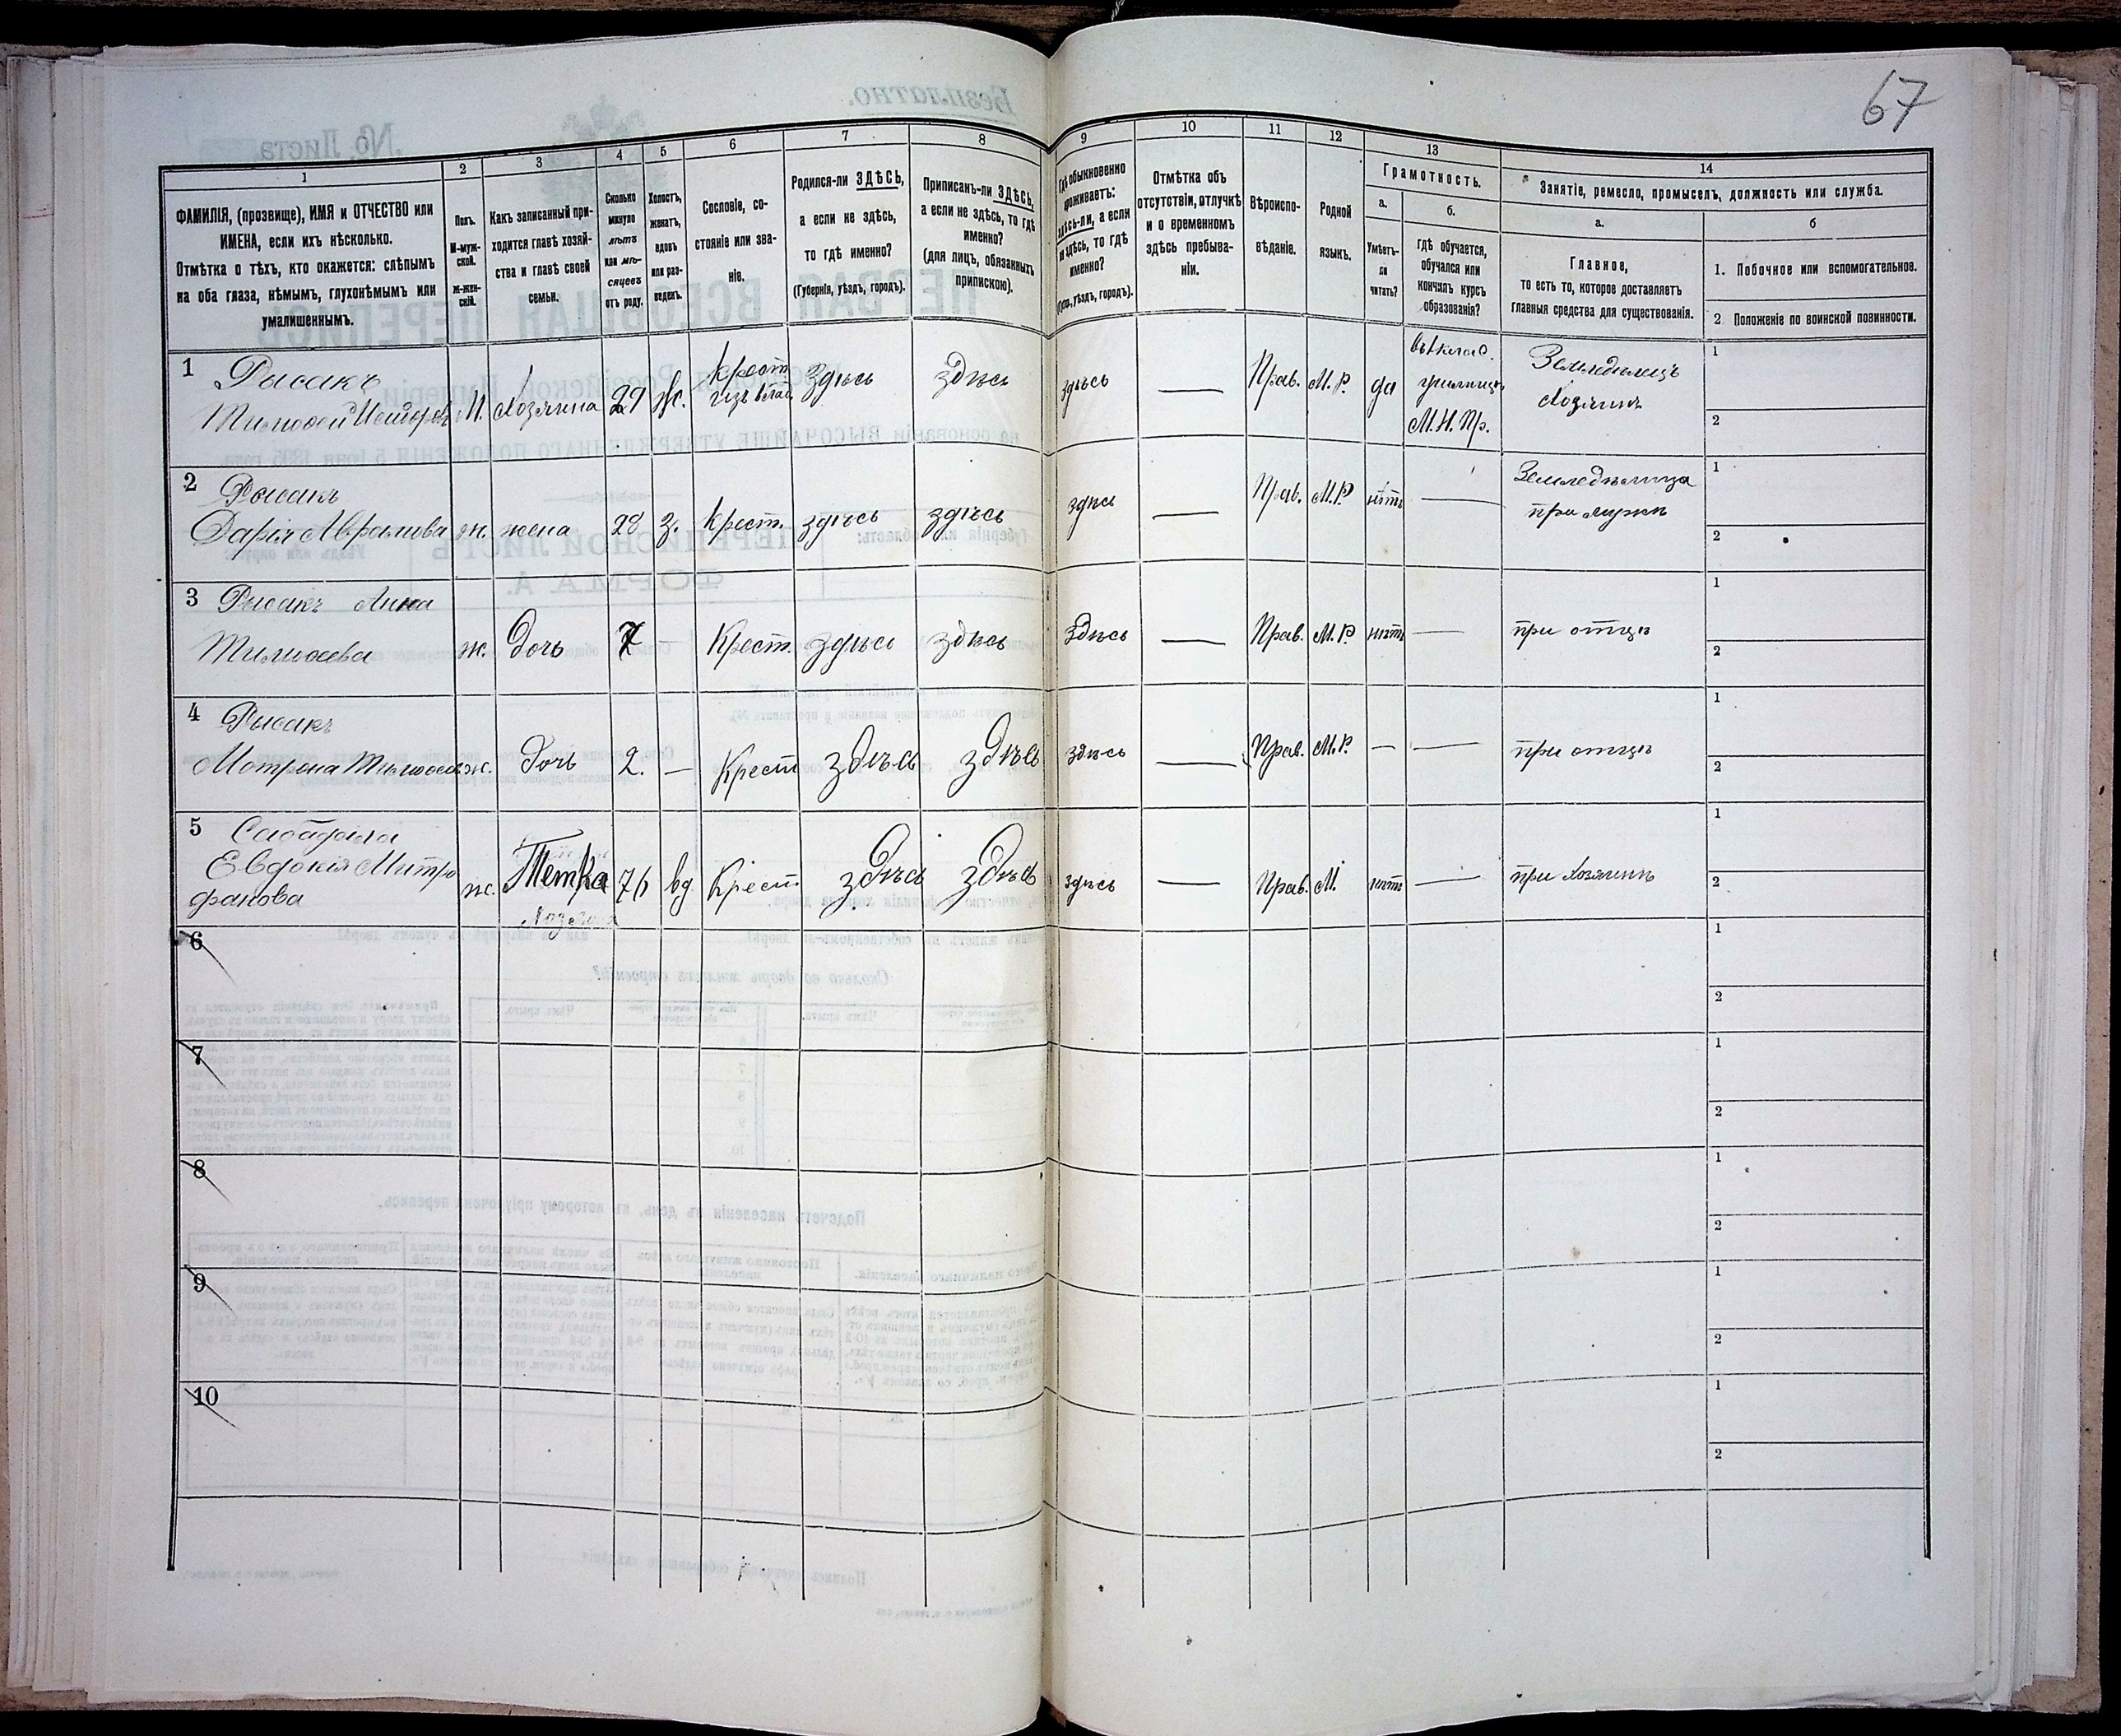 67
1 2 3 4 5 6 7 8 9 10 11 12 13 14
ФАМИЛІЯ, (прозвище), ИМЯ и ОТЧЕСТВО или
ИМЕНА, если ихъ нѣсколько.
Отмѣтка о тѣхъ, кто окажется: слѣпымъ
на оба глаза, нѣмымъ, глухонѣмымъ или
умалишеннымъ.
Полъ.
М-муж-
ской.
Ж-жен-
скій.
Какъ записанный при-
ходится главѣ хозяй-
ства и главѣ своей
семьи.
Сколько
минуло
лѣтъ
или мѣ-
сяцевъ
отъ роду.
Холостъ,
женатъ,
вдовъ
или раз-
веденъ.
Сословіе, со-
стояніе или зва-
ніе.
Родился-ли ЗДѢСЬ,
а если не здѣсь,
то гдѣ именно?
(Губернія, уѣздъ, городъ).
Приписанъ-ли ЗДѢСЬ,
а если не здѣсь, то гдѣ
именно?
(для лицъ, обязанныхъ
припискою).
Гдѣ обыкновенно
проживаетъ:
здѣсь-ли, а если
не здѣсь, то гдѣ
именно?
уѣздъ, городъ).
Отмѣтка объ
отсутствіи, отлучкѣ
и о временномъ
здѣсь пребыва-
ніи.
Вѣроиспо-
вѣданіе.
Родной
языкъ.
Грамотность.
а.
Умѣетъ-
ли
читать?
б.
гдѣ обучается,
обучался или
кончилъ курсъ
образованія?
Занятіе, ремесло, промыселъ, должность или служба.
а.
Главное,
то есть то, которое доставляетъ
главныя средства для существованія.
б
1. Побочное или вспомогательное.
2. Положеніе по воинской повинности.
1 Рысакъ Крест. здѣсь здѣсь здѣсь — Прав. М.Р. да Земледѣлецъ 1
М. Хозяинъ 29 Ж. училищѣ Хозяинъ
М.Н.Пр. 2
2 Рысакъ Земледѣлица 1
Дарія Аврамова ж. жена 28 з. Крест. здѣсь здѣсь здѣсь — Прав. М.Р. нѣтъ — при мужѣ 2
3 Рысакъ Анна 1
Тимоѳеева ж. Дочь 7 — Крест. здѣсь здѣсь здѣсь — Прав. М.Р. нѣтъ — при отцѣ 2
4 Рысакъ 1
Мотрона ж. Дочь 2. — Крест здѣсь здѣсь здѣсь — Прав. М.Р. — — при отцѣ 2
5 1
Евдокія Митро ж. Тетка 76 вд Крест здѣсь здѣсь здѣсь — Прав. М. нѣтъ — при хозяинѣ 2
фанова
6 1
2
7 1
2
8 1
2
9 1
2
10 1
2